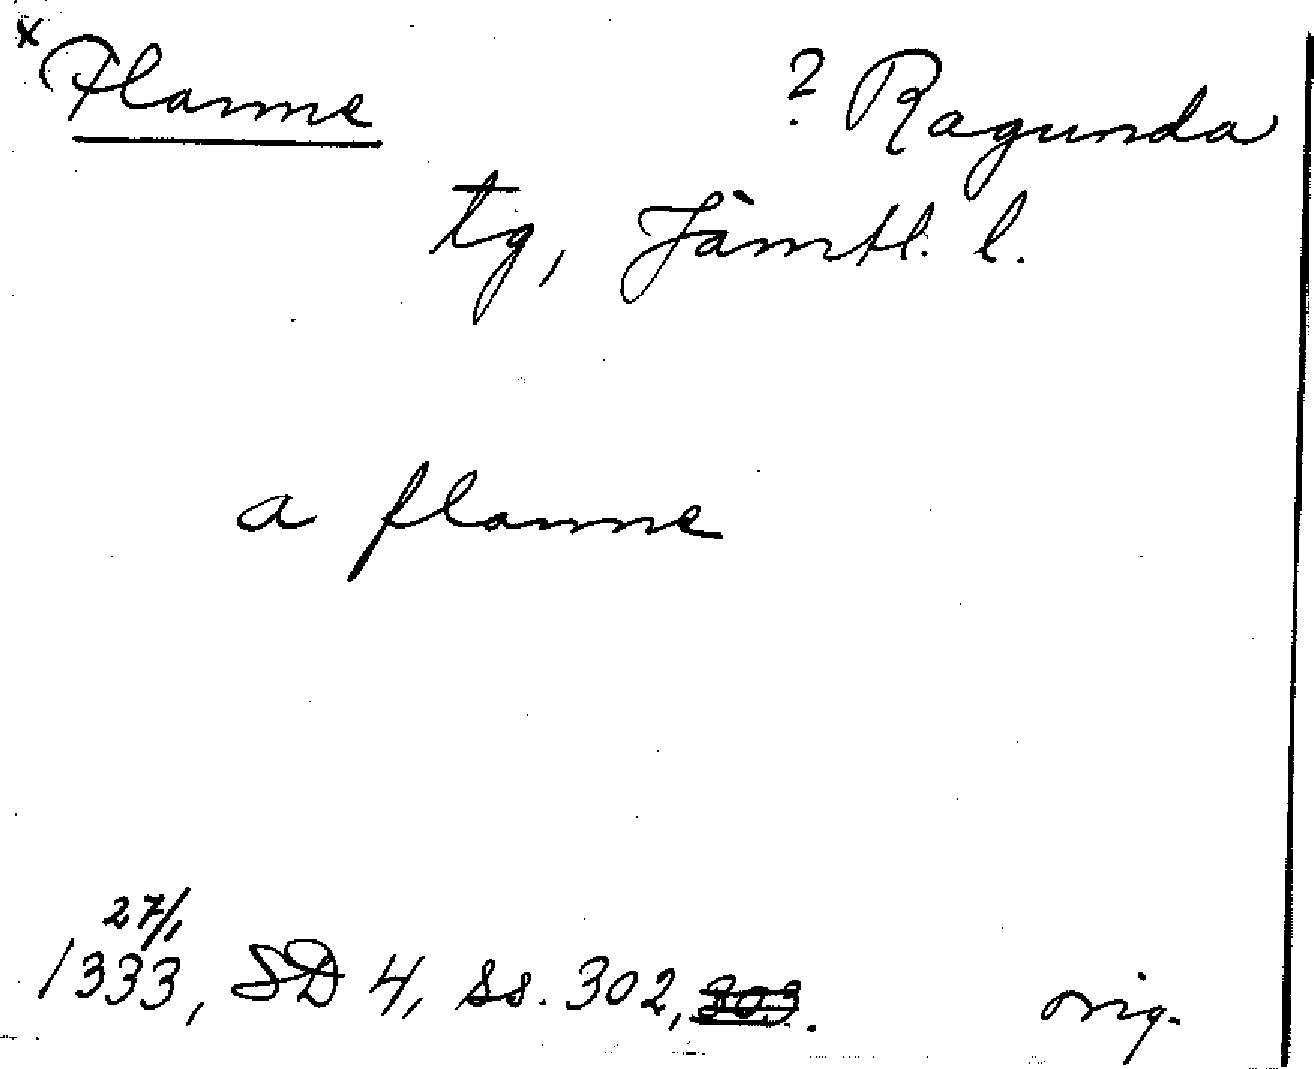 x Flanne ? Ragunda
tg, Jämtl. l.
a flanne
27/1
1333, SD 4, ss. 302, 303. orig.